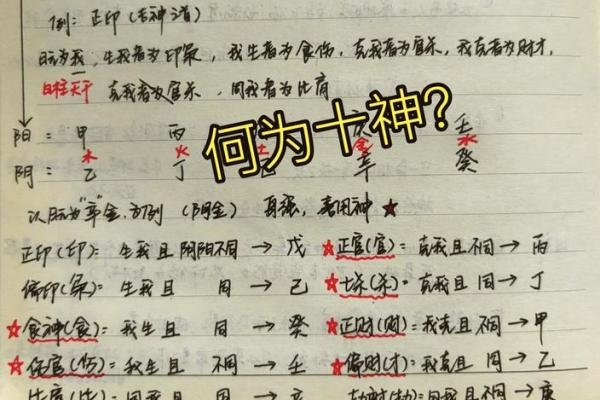 例: 正印(吉神道)
日元为我, 生我者为印枭, 我生者为食伤, 克我者为官杀, 我克者为财才,
日柱天干 克我者为官杀, 同我者为比肩
何为十神?
阳: 甲 丙 庚 壬
木 火 土 金 水
阴: 乙 丁 辛 癸
以日元为"辛"金,为例 (阴金) 身强, 喜用神 ★
正印(印): 生我且阴阳不同 → 戊 ★正官(官): 克我且不同 → 丙
偏印(枭): 生我且 同 → 己 ★七杀(杀): 克我且 同 → 丁
★食神(食): 我生且 同 → 癸 ★正财(财): 我克且不同 → 甲
★伤官(伤): 我生且 不同 → 壬 ★偏财(才): 我克且 同 → 乙
比肩(比): 同我且 同 → 辛 劫财(劫): 同我且不同 → 庚